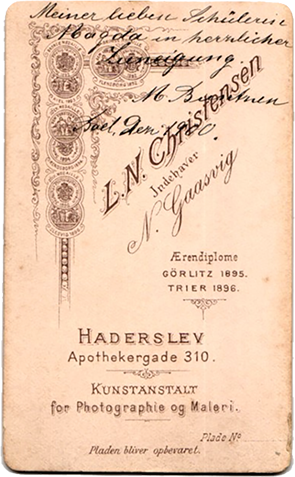 Meiner lieben Schülerin
Magda in herzlicher
Zuneigung
M.
L. N. Christensen
Indehaver
N. Gaasvig
Ærendiplome
GÖRLITZ 1895.
TRIER 1896.
HADERSLEV
Apothekergade 310.
KUNSTANSTALT
for Photographie og Maleri.
Plade No
Pladen bliver opbevaret.